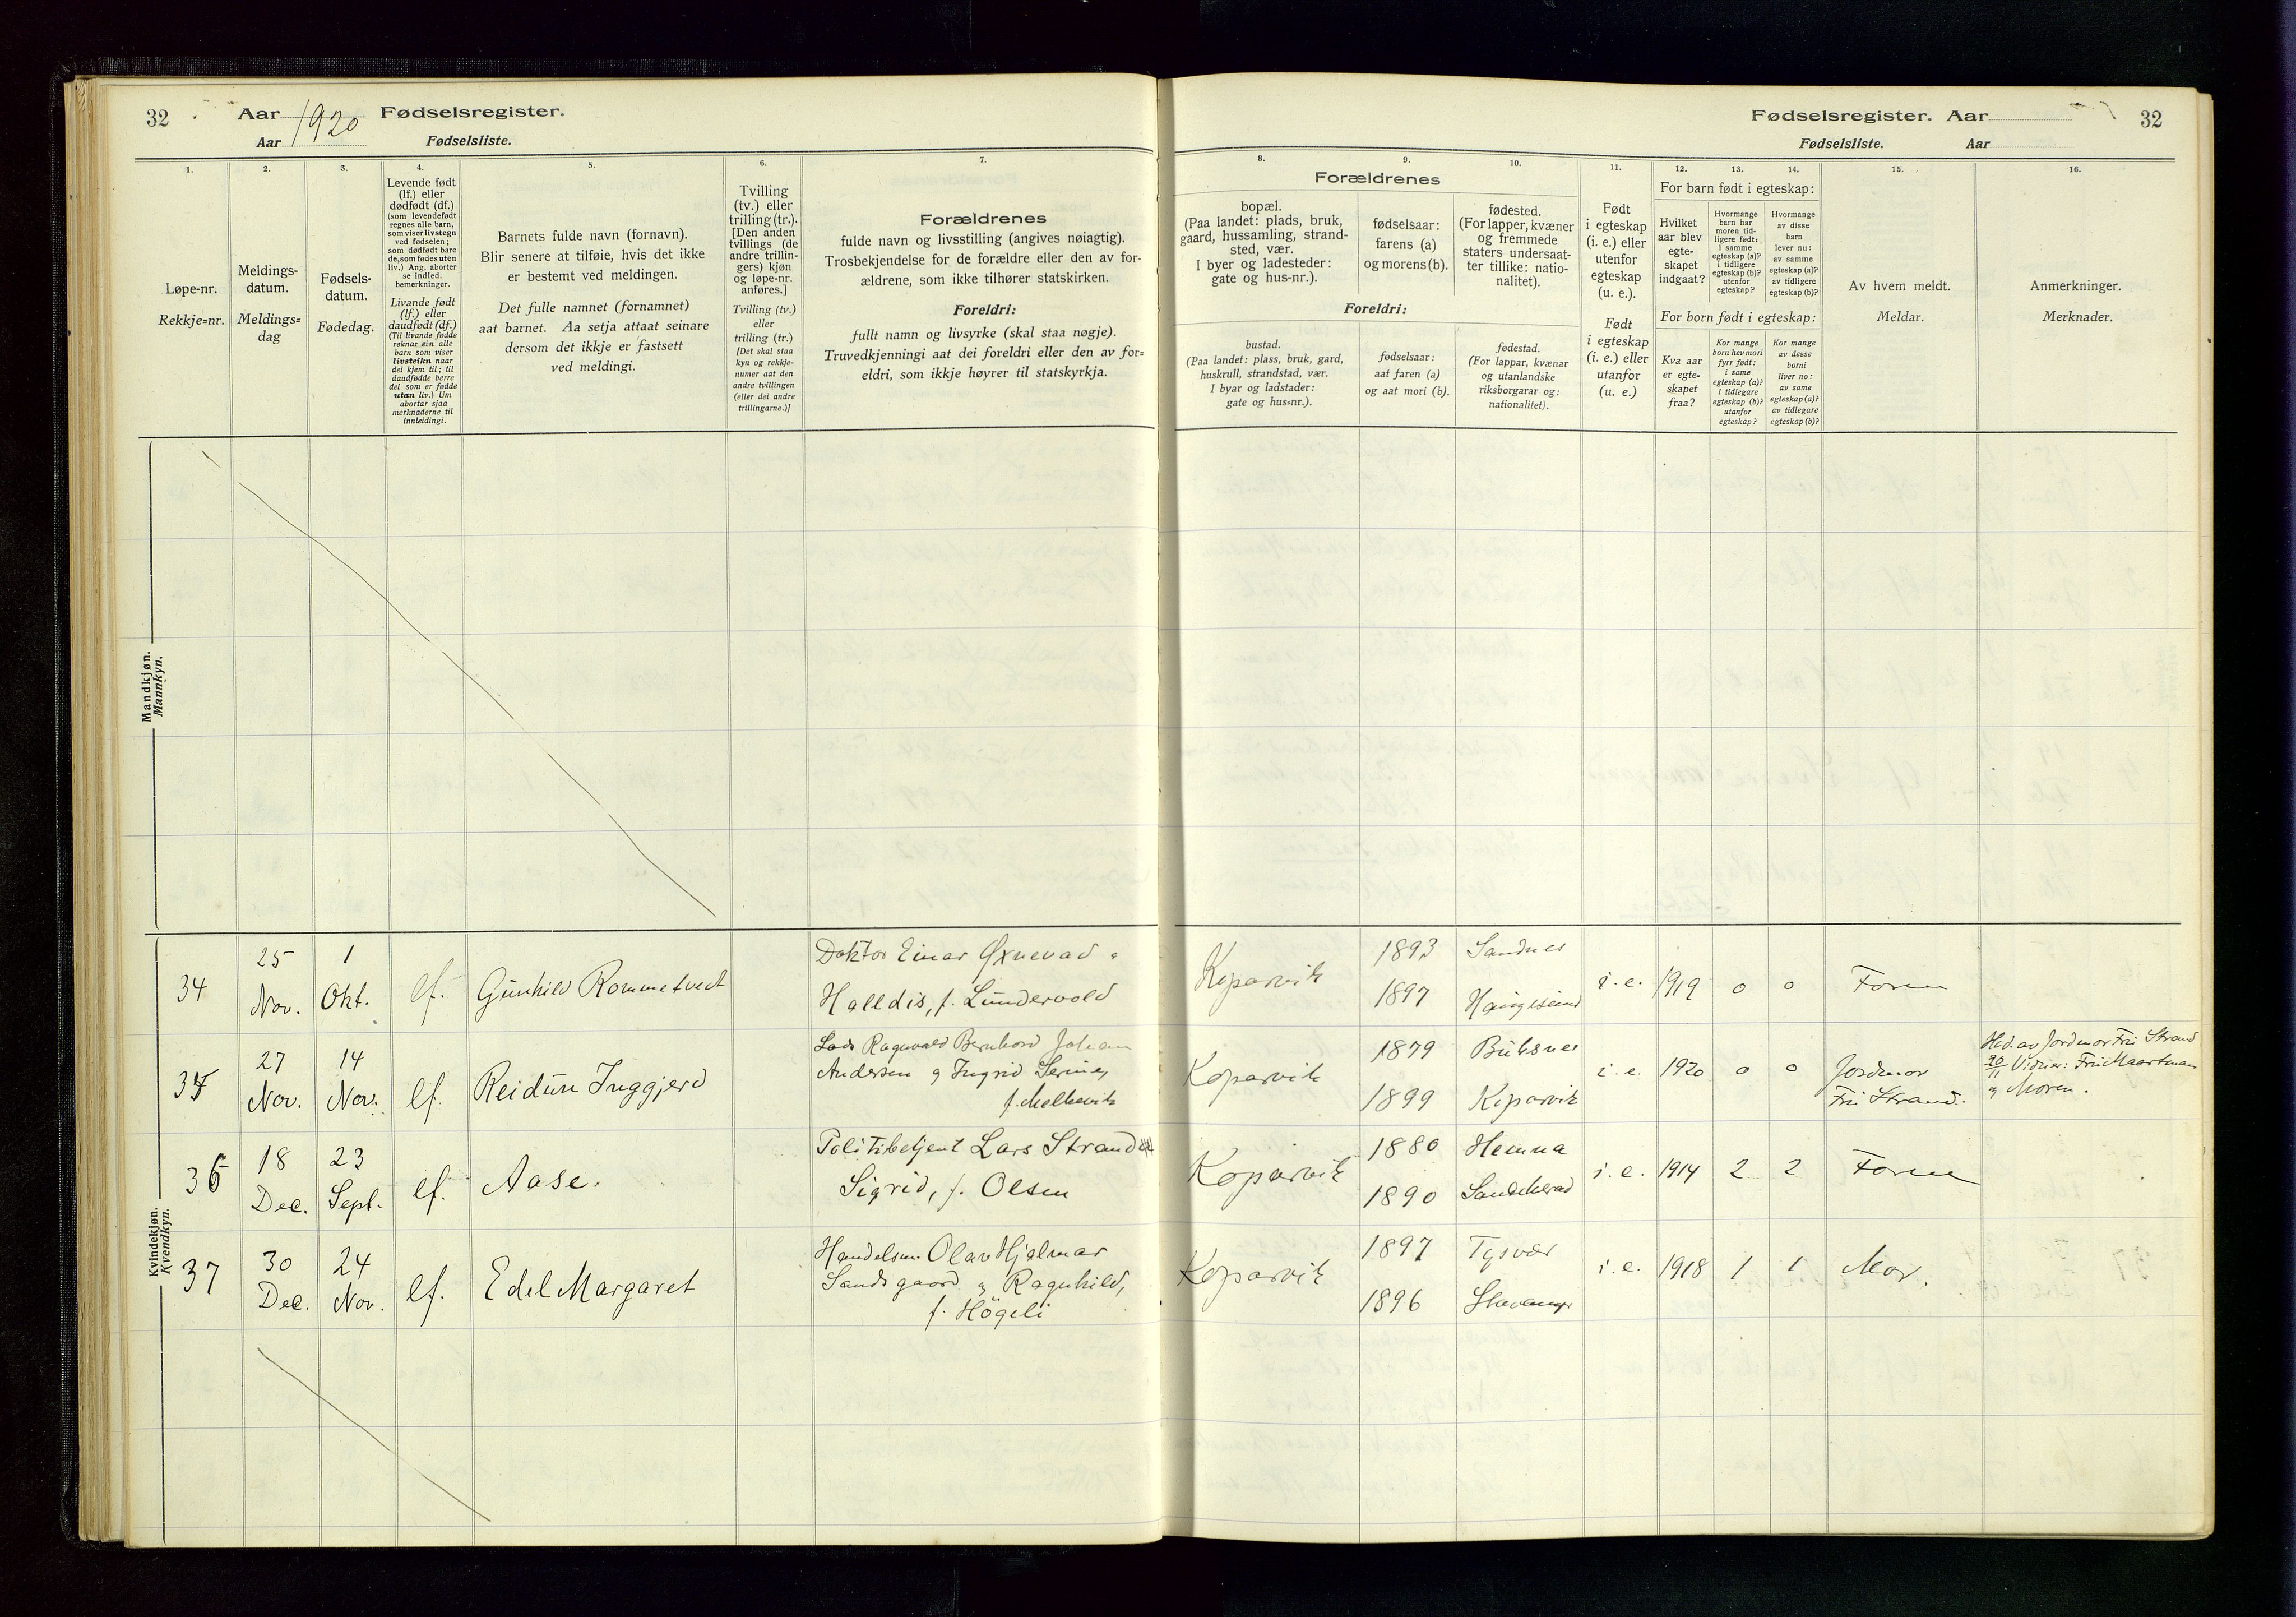 32
Aar 1920 Fødselsregister.
Aar Fødselsliste.
1.
Løpe-nr.
Rekkje=nr.
2.
Meldings-
datum.
Meldings=
dag
3.
Fødsels-
datum.
Fødedag.
4.
Levende født
(lf.) eller
dødfødt (df.)
(som levendefødt
regnes alle barn,
som viser livstegn
ved fødselen;
som dødfødt bare
de, som fødes uten
liv.) Ang. aborter
se indled.
bemerkninger.
Livande født
(lf.) eller
daudfødt (df.)
(Til livande fødde
reknar ein alle
barn som viser
livsteikn naar
dei kjem til; til
daudfødde berre
dei som er fødde
utan liv.) Um
abortar sjaa
merknaderne til
innleidingi.
5.
Barnets fulde navn (fornavn).
Blir senere at tilføie, hvis det ikke
er bestemt ved meldingen.
Det fulle namnet (fornamnet)
aat barnet. Aa setja attaat seinare
dersom det ikkje er fastsett
ved meldingi.
6.
Tvilling
(tv.) eller
trilling (tr.).
[Den anden
tvillings (de
andre trillin-
gers) kjøn
og løpe-nr.
anføres.]
Tvilling (tv.)
eller
trilling (tr.)
[Det skal staa
kyn og rekkje-
numer aat den
andre tvillingen
(eller dei andre
trillingarne.)]
7.
Forældrenes
fulde navn og livsstilling (angives nøiagtig).
Trosbekjendelse for de forældre eller den av for-
ældrene, som ikke tilhører statskirken.
Foreldri:
fullt namn og livsyrke (skal staa nøgje).
Truvedkjenningi aat dei foreldri eller den av for=
eldri, som ikkje høyrer til statskyrkja.
Mandkjøn.
Mannkyn.
Kvindekjøn.
Kvendkyn.
34
25
Nov.
1
Okt.
lf.
Gunhild Rommetvedt
Doktor Einar Øxnevad
Halldis, f. Lundervold
35
27
Nov.
14
Nov.
lf.
Reidun Inggjerd
Lods Ragnvald Bernhard Johan
Andersen og Ingrid Serine,
f. Melkevik
36
18
Dec.
23
Sept.
lf.
Aase.
Politibetjent Lars Strand
Sigrid, f. Olsen
37
30
Dec.
24
Nov.
lf.
Edel Margaret
Handelsm. Olav Hjalmar
Sandsgaard og Ragnhild,
f. Högeli
Fødselsregister. Aar
32
Fødselsliste. Aar
8.
Forældrenes
bopæl.
(Paa landet: plads, bruk,
gaard, hussamling, strand-
sted, vær.
I byer og ladesteder:
gate og hus-nr.).
Foreldri:
bustad.
(Paa landet: plass, bruk, gard,
huskrull, strandstad, vær.
I byar og ladstader:
gate og hus=nr.).
9.
fødselsaar:
farens (a)
og morens (b).
fødselsaar:
aat faren (a)
og aat mori (b).
10.
fødested.
(For lapper, kvæner
og fremmede
staters undersaat-
ter tillike: natio-
nalitet).
fødestad.
(For lappar, kvænar
og utanlandske
riksborgarar og:
nationalitet).
11.
Født
i egteskap
(i. e.) eller
utenfor
egteskap
(u. e.).
Født
i egteskap
(i. e.) eller
utanfor
(u. e.)
12.
13.
14.
For barn født i egteskap:
Hvilket
aar blev
egte-
skapet
indgaat?
Hvormange
barn har
moren tid-
ligere født:
i samme
egteskap (a)?
i tidligere
egteskap (b)?
utenfor
egteskap?
Hvormange
av disse
barn
lever nu:
av samme
egteskap (a)?
av tidligere
egteskap (b)?
For born født i egteskap:
Kva aar
er egte=
skapet
fraa?
Kor mange
born hev mori
fyrr født:
i same
egteskap (a)?
i tidlegare
egteskap (b)?
utanfor
egteskap?
Kor mange
av desse
borni
liver no:
av same
egteskap (a)?
av tidlegare
egteskap (b)?
15.
Av hvem meldt.
Meldar.
16.
Anmerkninger.
Merknader.
Kopervik
1893
1897
Sandnes
Haugesund
i. e.
1919
0
0
Faren
Kopervik
1879
1899
Buksnes
Kopervik
i. e.
1920
0
0
Jordmor
Fru Strand.
Hjd. av Jordmor Fru Strand
20/11 Vidner: Fru Maartman
og Moren.
Kopervik
1880
1890
Hemna
Sandeherad
i. e.
1914
2
2
Faren
Kopervik
1897
1896
Tysvær
Stavanger
i. e.
1918
1
1
Mor.